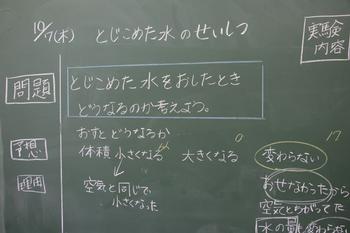 10/7(木) とじこめた水のせいしつ
実験
内容
問題
とじこめた水をおしたとき
どうなるのか考えよう。
おすとどうなるか
予想
体積 小さくなる 大きくなる 0 変わらない 17
理由
空気と同じで
小さくなった
おせなかったから
空気とちがってた
水の量も変わらない